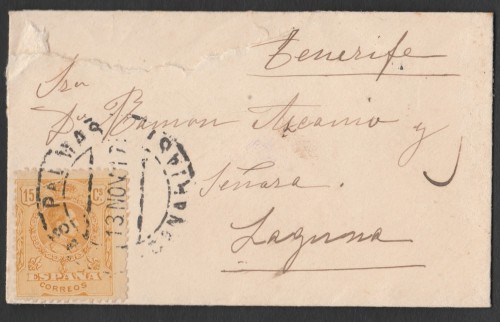 Tenerife
Sor
Dn. Ramon Ascanio y
Señora.
Laguna
PALMAS
13 NOV 17
CANARIAS
15 15
ESPAÑA
CORREOS